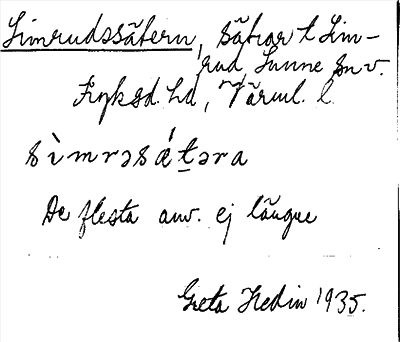 Simrudssätern, sätrar t Sim-
rud Sunne sn v.
Fryksd. hd, Värml. l.
sìmrəsǽt̲əra
De flesta anv. ej längre
Greta Hedin 1935.